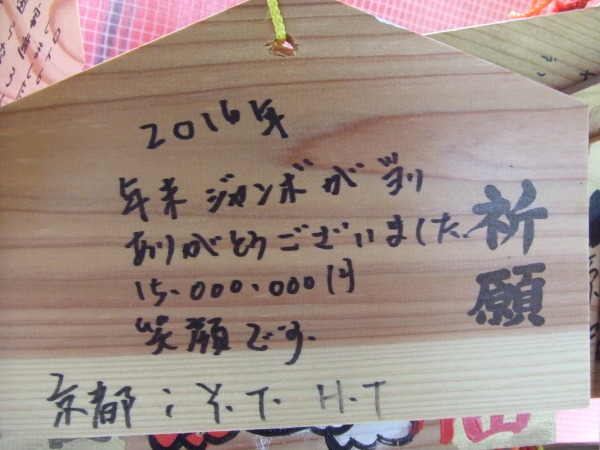 2016年
年末ジャンボが当り
ありがとうございました.
15.000.000円
笑顔です.
京都:Y.T. H.T
祈願